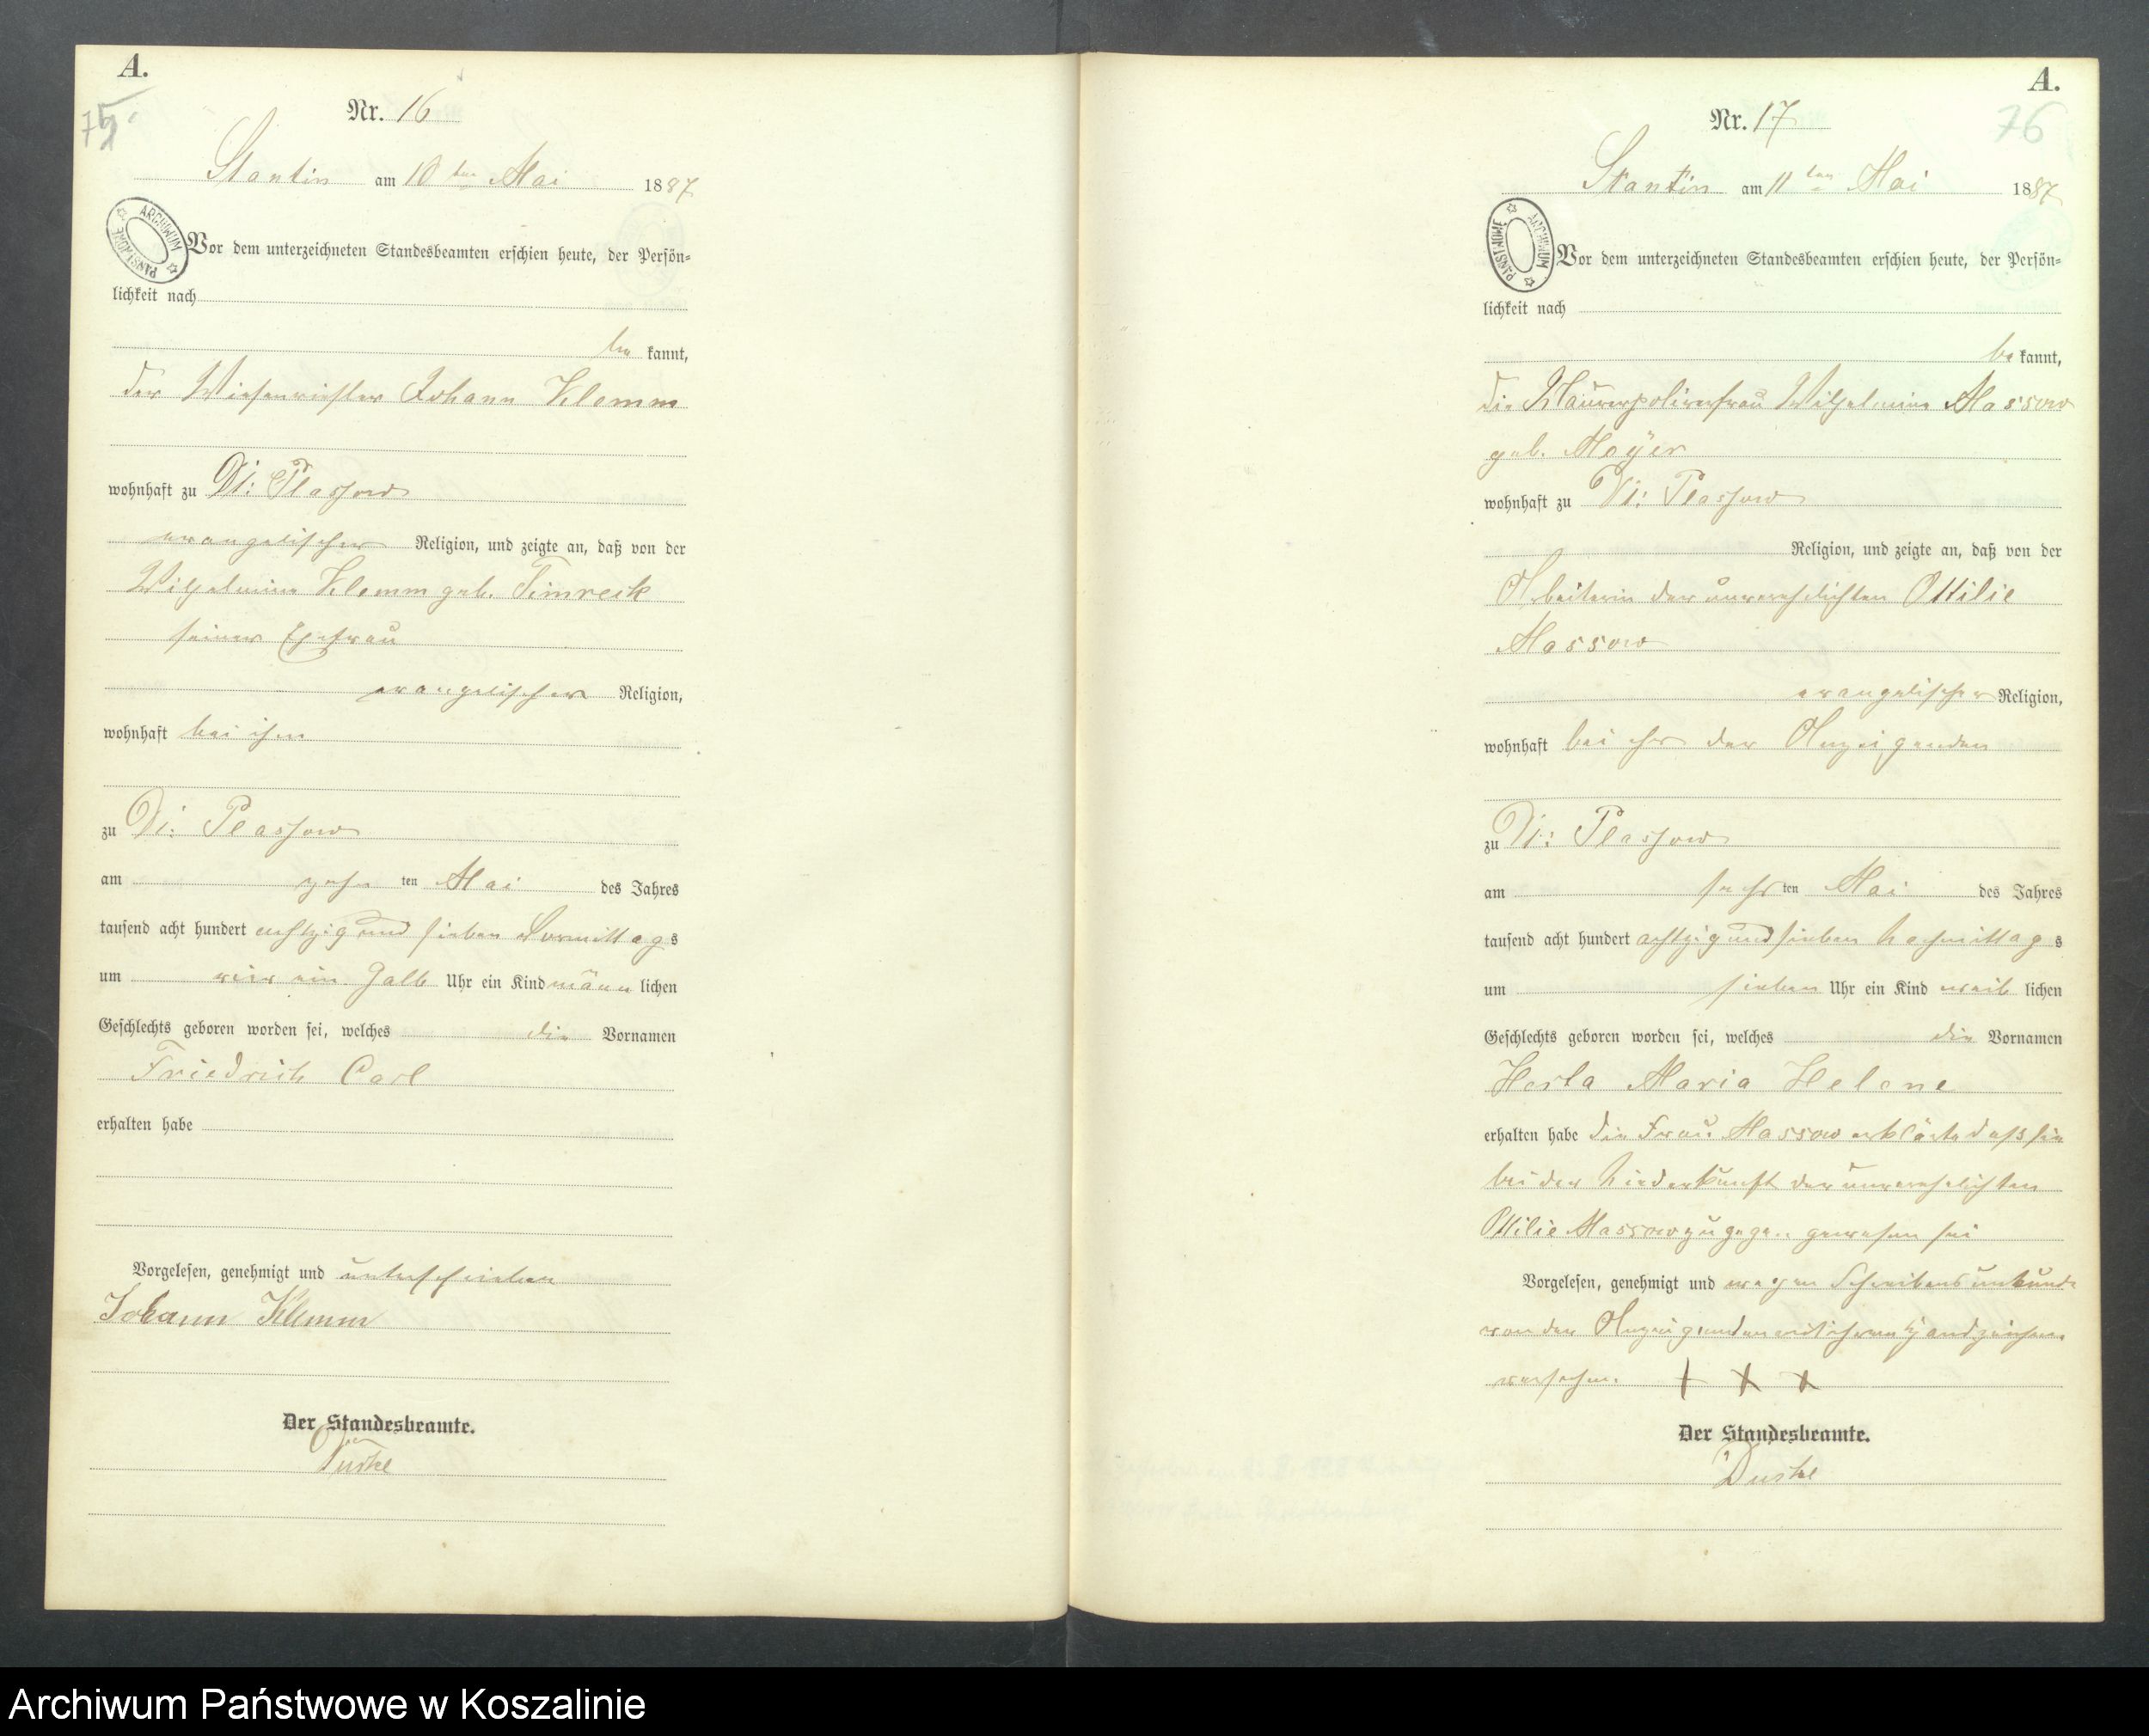 A.
75
Nr. 16
Stantin am 10 ten Mai 1887
ARCHIWUM PAŃSTWOWE
Vor dem unterzeichneten Standesbeamten erschien heute, der Persön=
lichkeit nach
be kannt,
der Wiesenwärter Johann Klemm
wohnhaft zu Dt: Plassow
evangelischer Religion, und zeigte an, daß von der
Wilhelmine Klemm geb. Timreck
seiner Ehefrau
evangelischer Religion,
wohnhaft bei ihm
zu Dt: Plassow
am zehn ten Mai des Jahres
tausend acht hundert achtzig und sieben Vormittags
um vier ein halb Uhr ein Kind männ lichen
Geschlechts geboren worden sei, welches die Vornamen
Friedrich Carl
erhalten habe
Vorgelesen, genehmigt und unterschrieben
Johann Klemm
Der Standesbeamte.
A.
76
Nr. 17
Stantin am 11 ten Mai 1887
ARCHIWUM PAŃSTWOWE
Vor dem unterzeichneten Standesbeamten erschien heute, der Persön=
lichkeit nach
be kannt,
die Maurerpolierfrau Wilhelmine Massow
geb. Meyer
wohnhaft zu Dt: Plassow
Religion, und zeigte an, daß von der
Arbeiterin der unverehelichten Ottilie
Massow
evangelischer Religion,
wohnhaft bei ihr der Anzeigenden
zu Dt: Plassow
am sechs ten Mai des Jahres
tausend acht hundert achtzig und sieben Nachmittags
um sieben Uhr ein Kind weib lichen
Geschlechts geboren worden sei, welches die Vornamen
Herta Maria Helene
erhalten habe die Frau Massow erklärte daß sie
bei der Niederkunft der unverehelichten
Ottilie Massow zugegen gewesen sei
Vorgelesen, genehmigt und wegen Schreibensunkunde
von der Anzeigenden mit ihrem Handzeichen
versehen. + + +
Der Standesbeamte.
Archiwum Państwowe w Koszalinie